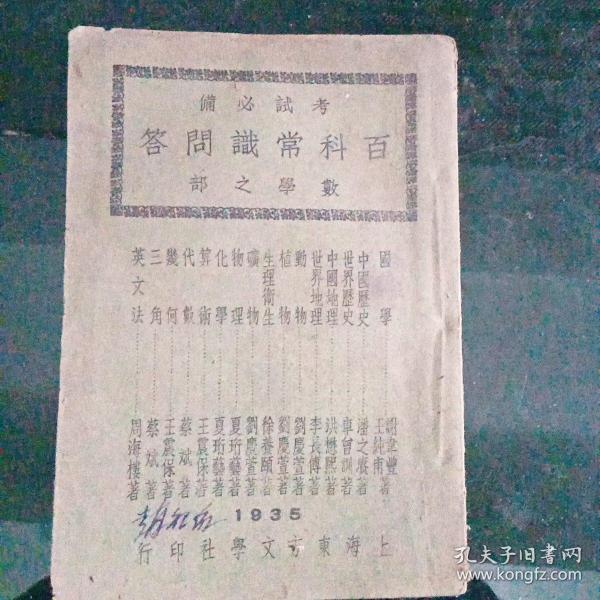 考試必備
百科常識問答
數學之部
國學………謝韋豐 王純甫 著
中國歷史………潘之賡著
世界歷史………卓曾訓著
中國地理………洪懋熙著
世界地理………李長傅著
動物………劉慶萱著
植物………劉慶萱著
生理衛生………徐養頤著
礦物………劉慶萱著
物理………夏珩藝著
化學………夏珩藝著
算術………王震保著
代數………蔡斌著
幾何………王震保著
三角………蔡斌著
英文法………周海樓著
1935
上海東方文學社印行
孔夫子旧书网
www.kongfz.com